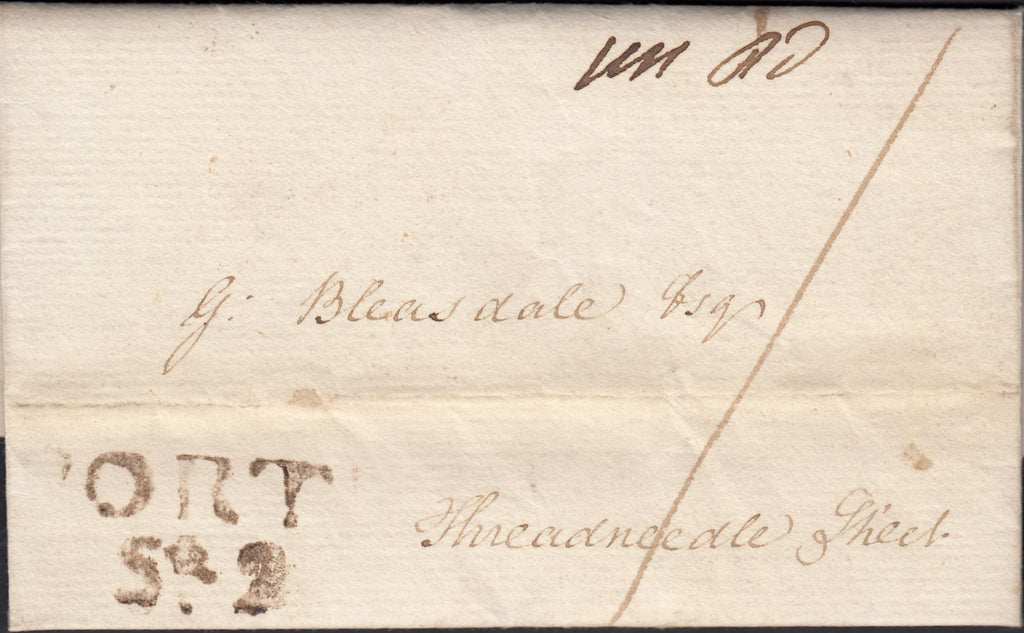 un Pd
G: Bleasdale Esqr
Threadneedle Street
ORT
Sr. 2